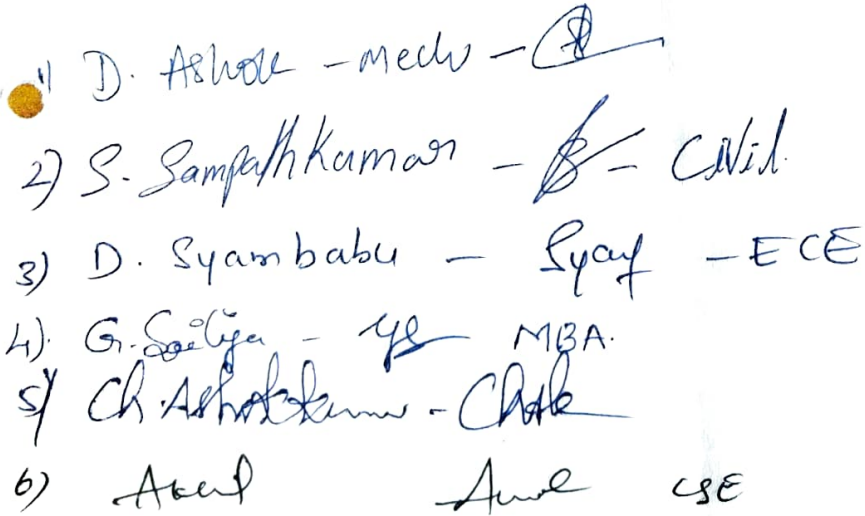 1) D. Ashok - mech -
2) S. Sampath Kumar - - Civil.
3) D. Syam babu - Syam - ECE
4). G. - MBA.
5) Ch. Ashok kumar -
6) CSE